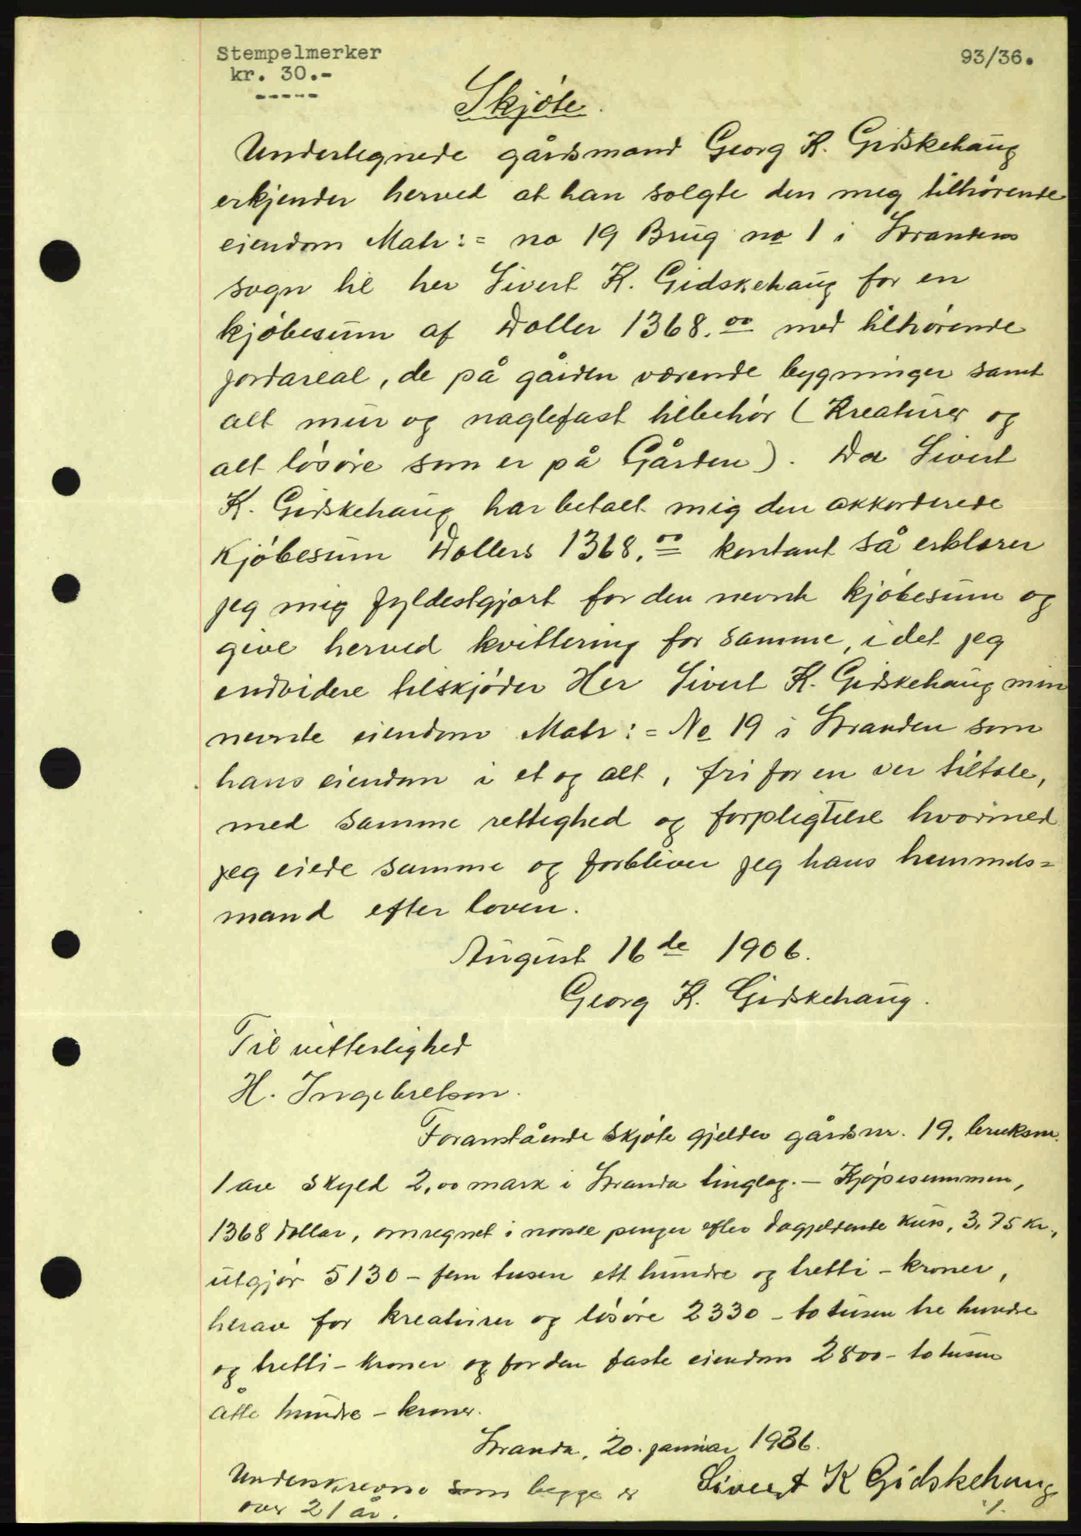 Stempelmerker
kr. 30.-
-----
93/36.
Skjöte.
Undertegnede gårdsmand Georg K. Gidskehaug
erkjender herved at han solgte den meg tilhörende
eiendom Matr:= no 19 Brug no 1 i Stranden
sogn til her Sivert K. Gidskehaug for en
kjöbesum af Doller 1368.00 med tilhörende
jordareal, de på gården værende bygninger samt
alt mur og naglefast tilbehör ( Kreaturer og
alt lösöre som er på Gården). Da Sivert
K. Gidskehaug har betalt mig den akkorderede
Kjöbesum Dollers 1368.00 kontant så erklærer
jeg mig fyldestgjort for den nevnte kjöbesum og
give herved kvittering for samme, i det jeg
endvidere tilskjöder Her Sivert K. Gidskehaug min
nevnte eiendom Matr:= No 19 i Stranden som
hans eiendom i et og alt, fri for en ver tiltale,
med samme rettighed og forpligtelse hvormed
jeg eiede samme og forbliver jeg hans hemmels=
mand efter loven.
August 16de 1906.
Georg K. Gidskehaug.
Til vitterlighed
H. Ingebretsen.
Foranstående skjöte gjelder gårdsnr. 19, bruksnr.
1 av skyld 2,00 mark i Stranda tinglag. - Kjöpesummen,
1368 dollar, omregnet i norske penger efter dagjeldende kurs, 3,75 kr,
utgjör 5130 - fem tusen ett hundre og tretti - kroner,
herav for kreaturer og lösöre 2330 - to tusen tre hundre
og tretti - kroner og for den faste eiendom 2800 - to tusen
åtte hundre - kroner.
Stranda, 20. januar 1936.
Underskrevne som begge er
over 21 år.
Sivert K Gidskehaug